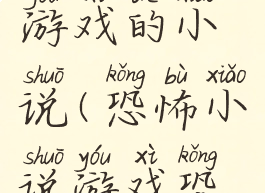 游戏的小
shuō kǒng bù xiǎo
说(恐怖小
shuō yóu xì kǒng
说游戏恐